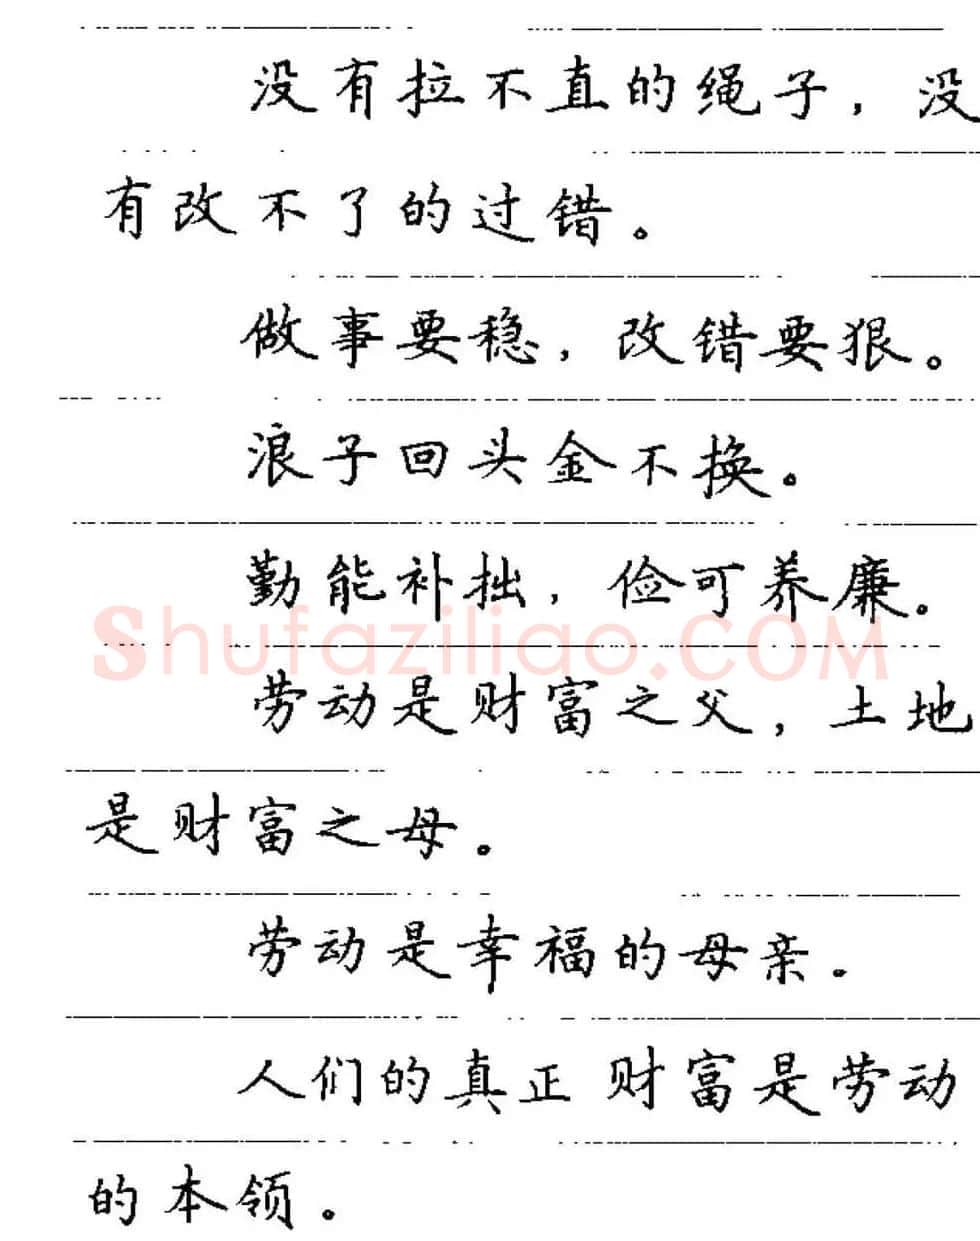 没有拉不直的绳子，没
有改不了的过错。
做事要稳，改错要狠。
浪子回头金不换。
勤能补拙，俭可养廉。
Shufaziliao.COM
劳动是财富之父，土地
是财富之母。
劳动是幸福的母亲。
人们的真正财富是劳动
的本领。